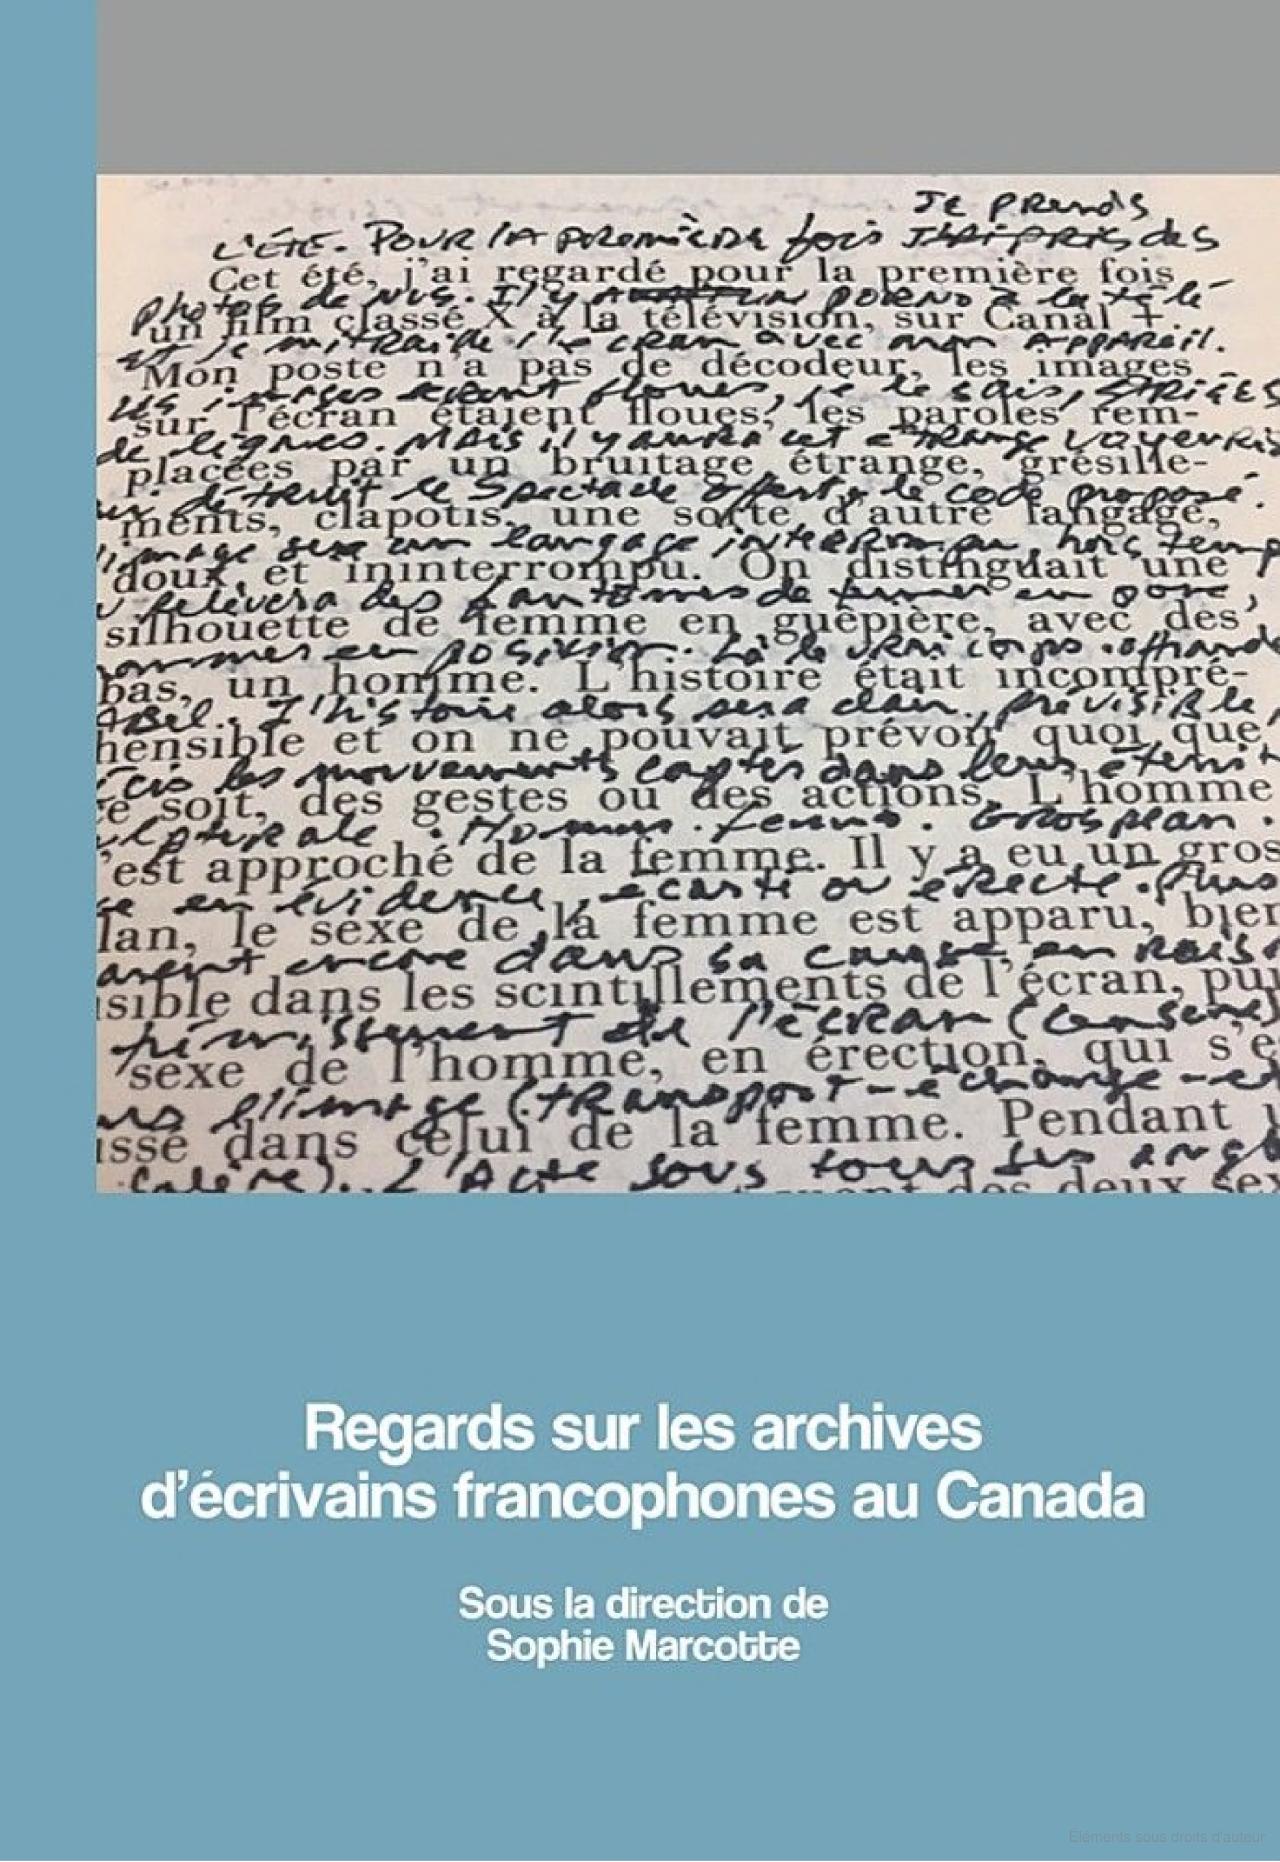 Je prends
L'ÉTÉ. POUR LA première fois J'AI PRIS des
Cet été, j'ai regardé pour la première fois
photos de nus. Il y un porno à la télé
un film classé X à la télévision, sur Canal +.
et je mitraille l'écran avec mon APPAREIL.
Mon poste n'a pas de décodeur, les images
les images floues, je le sais, striées
sur l'écran étaient floues, les paroles rem-
de lignes. MAIS il y aura cet étrange
placées par un bruitage étrange, grésille-
détruit le spectacle offert, le code proposé.
ments, clapotis, une sorte d'autre langage,
l'image sera un langage interrompu, hors temp
doux et ininterrompu. On distinguait une
relèvera des fantômes de femmes en pose,
silhouette de femme en guêpière, avec des
hommes en position. Là le vrai corps
bas, un homme. L'histoire était incompré-
L'histoire alors sera claire, prévisible,
hensible et on ne pouvait prévoir quoi que
les mouvements captés dans leur
ce soit, des gestes ou des actions. L'homme
Homme. femme. Gros plan.
'est approché de la femme. Il y a eu un gros
en évidence, écarté ou érecté.
lan, le sexe de la femme est apparu, bien
encore dans sa course en
sible dans les scintillements de l'écran, pui
de l'écran (
sexe de l'homme, en érection, qui s'e
l'image (transport - échange -
issé dans celui de la femme. Pendant u
L'Acte sous tous ses angl
des deux sex
Regards sur les archives
d'écrivains francophones au Canada
Sous la direction de
Sophie Marcotte
Éléments sous droits d'auteur